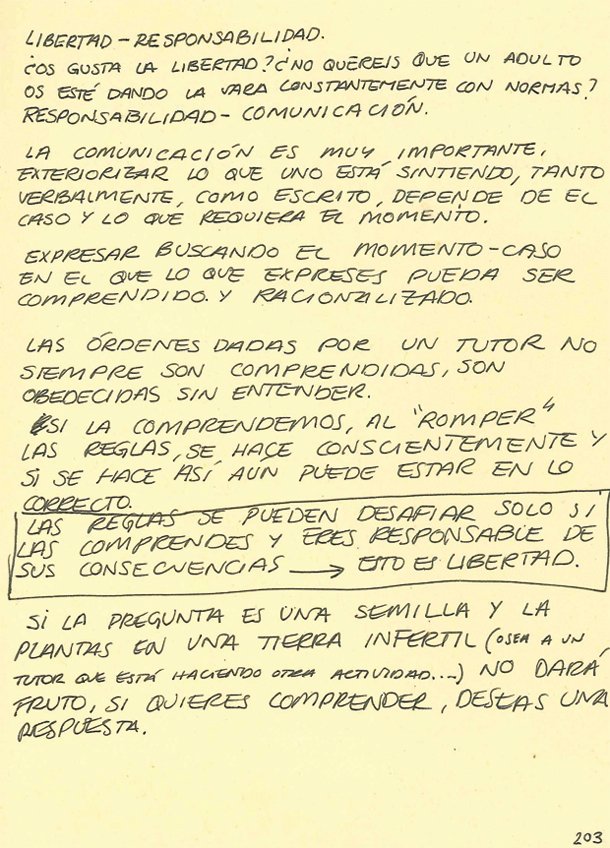 LIBERTAD - RESPONSABILIDAD.
¿OS GUSTA LA LIBERTAD? ¿NO QUEREIS QUE UN ADULTO
OS ESTÉ DANDO LA VARA CONSTANTEMENTE CON NORMAS?
RESPONSABILIDAD - COMUNICACIÓN.
LA COMUNICACIÓN ES MUY IMPORTANTE,
EXTERIORIZAR LO QUE UNO ESTÁ SINTIENDO, TANTO
VERBALMENTE, COMO ESCRITO, DEPENDE DE EL
CASO Y LO QUE REQUIERA EL MOMENTO.
EXPRESAR BUSCANDO EL MOMENTO-CASO
EN EL QUE LO QUE EXPRESES PUEDA SER
COMPRENDIDO. Y RACIONALIZADO.
LAS ÓRDENES DADAS POR UN TUTOR NO
SIEMPRE SON COMPRENDIDAS, SON
OBEDECIDAS SIN ENTENDER.
SI LA COMPRENDEMOS, AL "ROMPER"
LAS REGLAS, SE HACE CONSCIENTEMENTE Y
SI SE HACE ASÍ AUN PUEDE ESTAR EN LO
CORRECTO.
LAS REGLAS SE PUEDEN DESAFIAR SOLO SI
LAS COMPRENDES Y ERES RESPONSABLE DE
SUS CONSECUENCIAS → ESTO ES LIBERTAD.
SI LA PREGUNTA ES UNA SEMILLA Y LA
PLANTAS EN UNA TIERRA INFERTIL (OSEA A UN
TUTOR QUE ESTÁ HACIENDO OTRA ACTIVIDAD...) NO DARÁ
FRUTO, SI QUIERES COMPRENDER, DESEAS UNA
RESPUESTA.
203